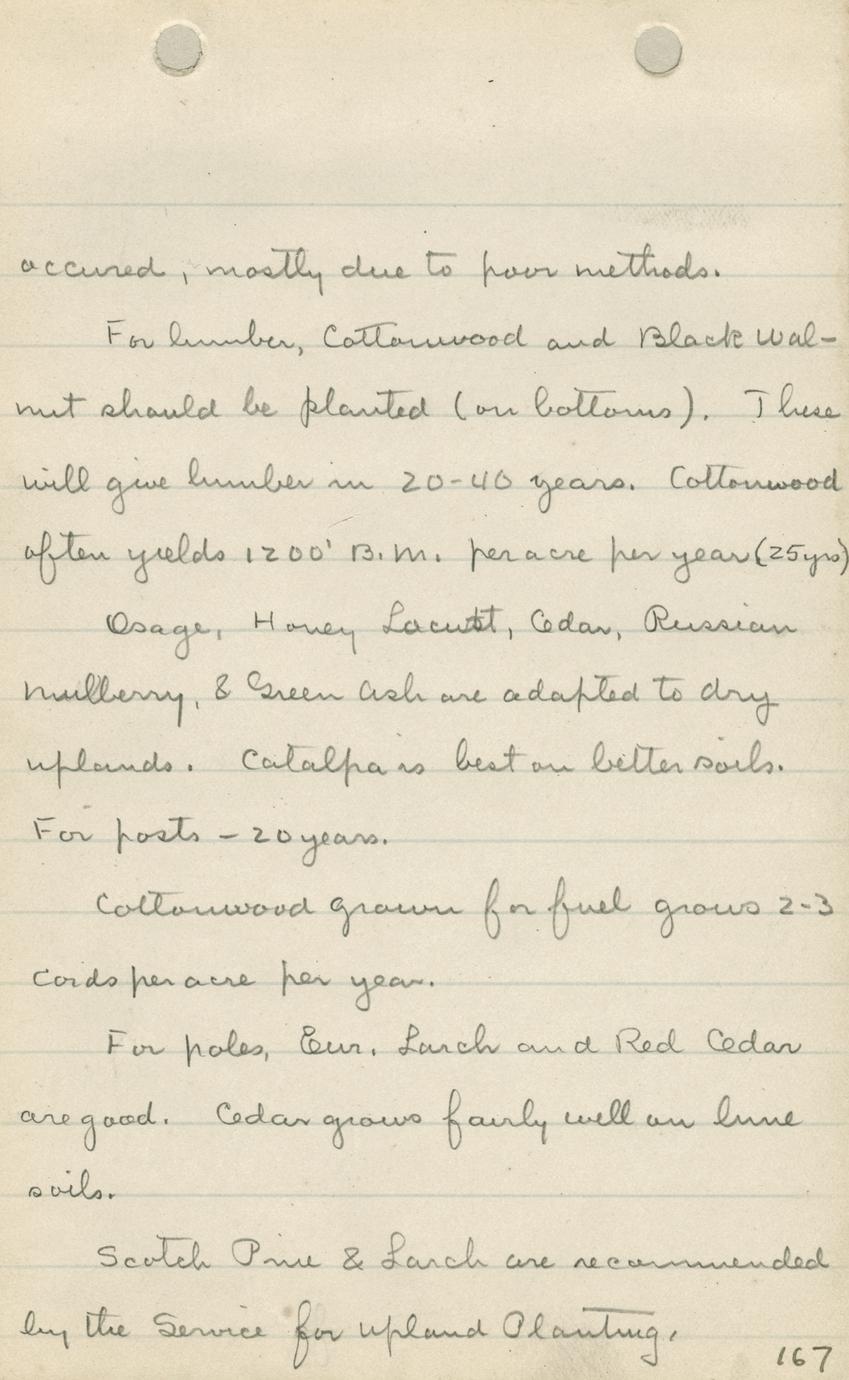 occured, mostly due to poor methods.
For lumber, Cottonwood and Black Wal-
nut should be planted (on bottoms). These
will give lumber in 20-40 years. Cottonwood
often yields 1200' B.M. per acre per year (25 yrs)
Osage, Honey Locust, Cedar, Russian
Mulberry, & Green Ash are adapted to dry
uplands. Catalpa is best on better soils.
For posts - 20 years.
Cottonwood grown for fuel grows 2-3
cords per acre per year.
For poles, Eur. Larch and Red Cedar
are good. Cedar grows fairly well on lime
soils.
Scotch Pine & Larch are recommended
by the Service for upland Planting.
167